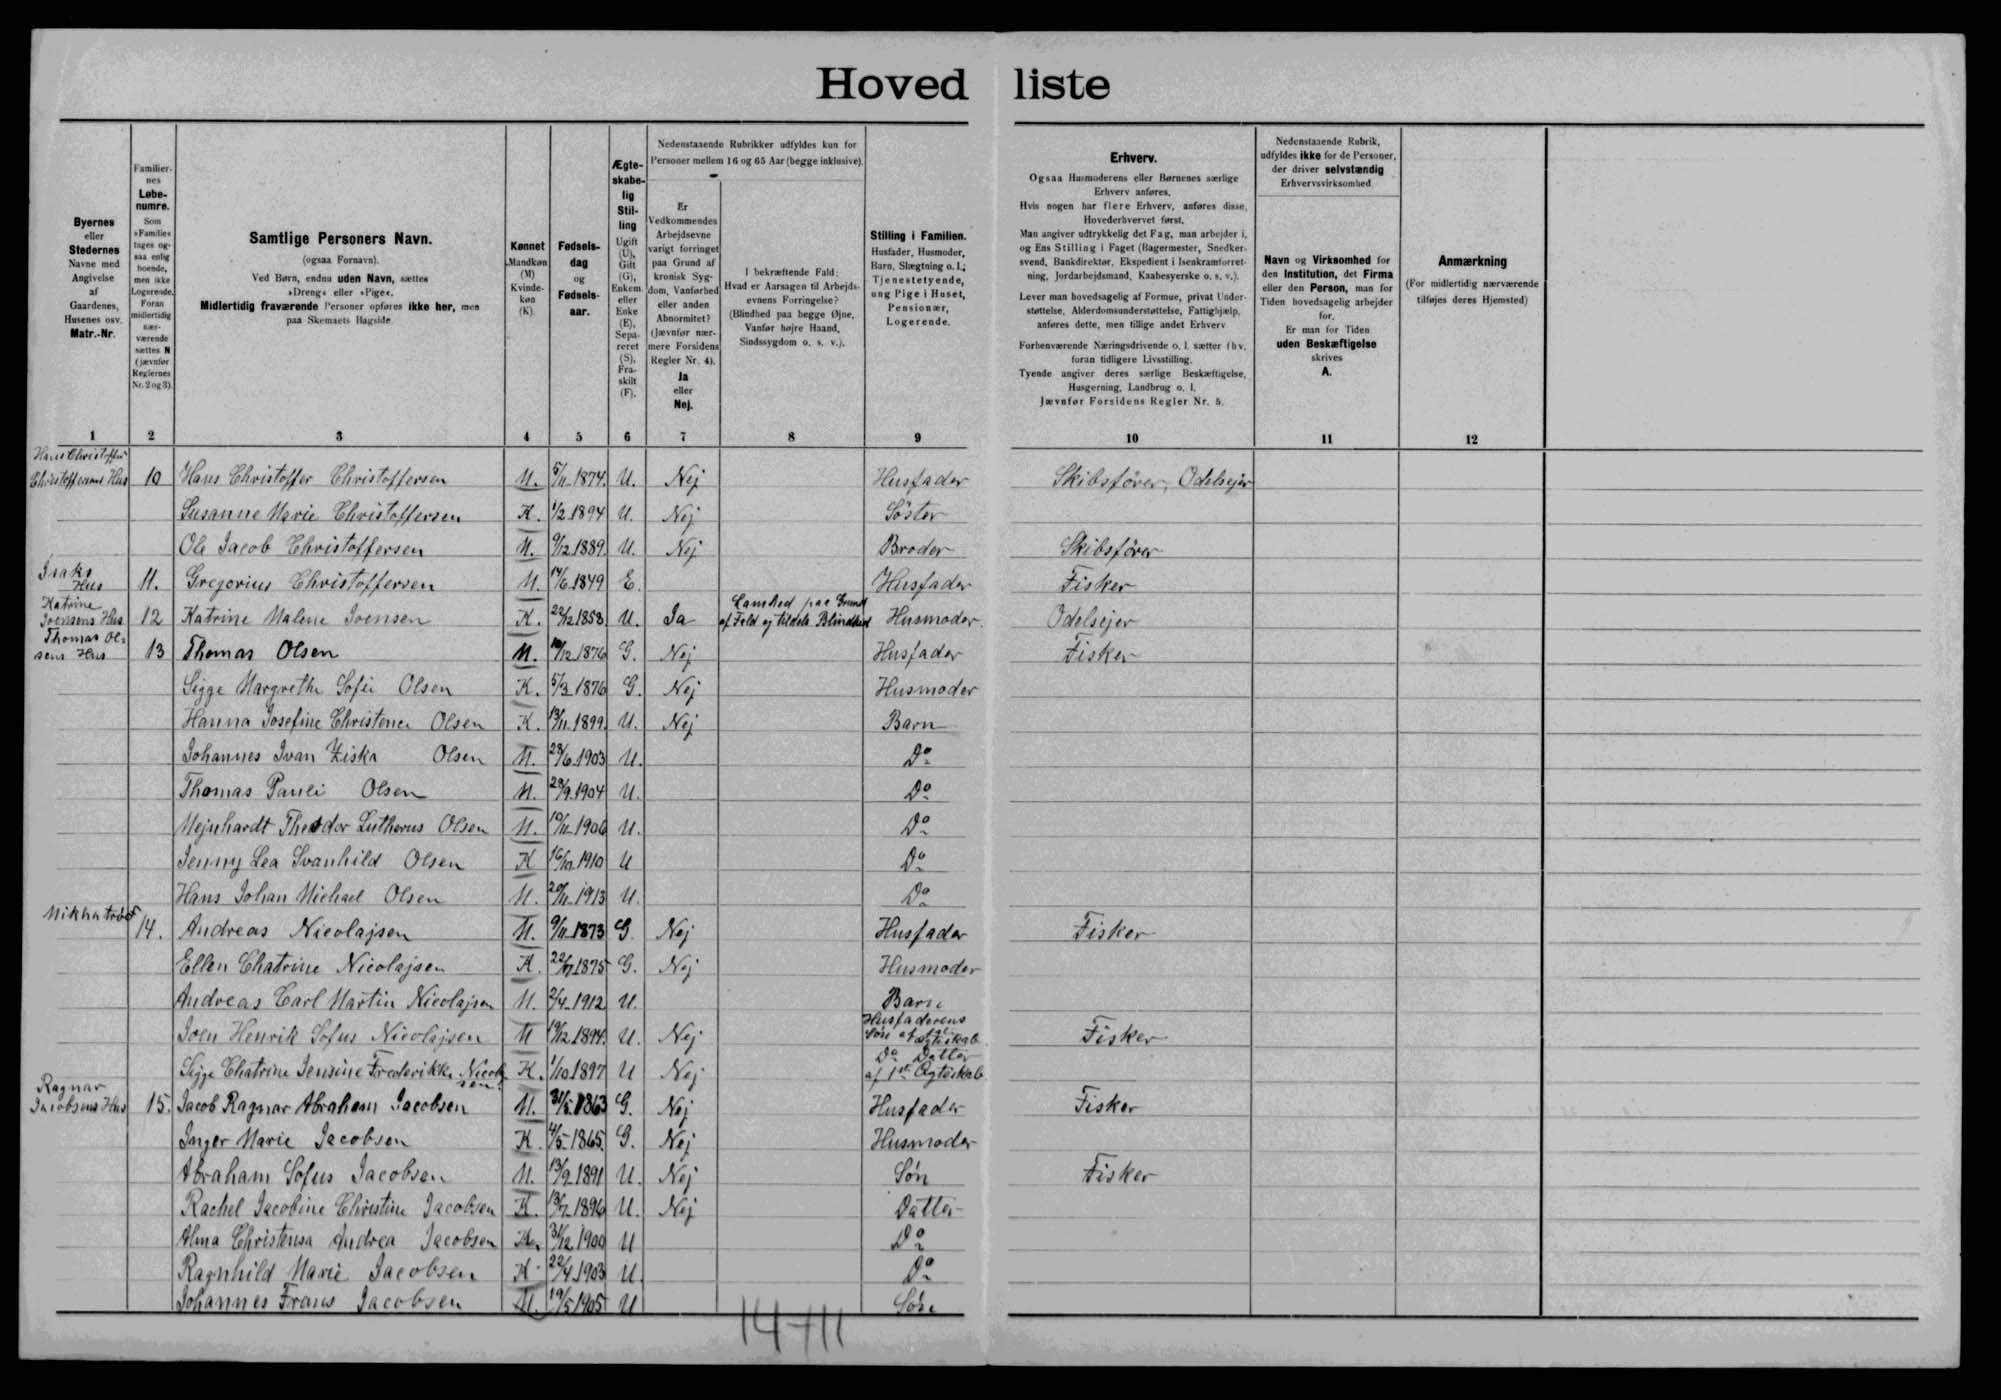 Hoved liste
Byernes
eller
Stedernes
Navne med
Angivelse
af
Gaardenes,
Husenes osv.
Matr.-Nr.
Familier-
nes
Løbe-
numre.
Som
»Familie«
tages og-
saa enlig
boende,
men ikke
Logerende.
Foran
midlertidig
nær-
værende
sættes N
(jævnfør
Reglernes
Nr. 2 og 3).
Samtlige Personers Navn.
(ogsaa Fornavn).
Ved Børn, endnu uden Navn, sættes
»Dreng« eller »Pige«.
Midlertidig fraværende Personer opføres ikke her, men
paa Skemaets Bagside.
Kønnet
Mandkøn
(M)
Kvinde-
køn
(K).
Fødsels-
dag
og
Fødsels-
aar.
Ægte-
skabe-
lig
Stil-
ling
Ugift
(U),
Gift
(G),
Enkem.
eller
Enke
(E),
Sepa-
reret
(S),
Fra-
skilt
(F).
Nedenstaaende Rubrikker udfyldes kun for
Personer mellem 16 og 65 Aar (begge inklusive).
Er
Vedkommendes
Arbejdsevne
varigt forringet
paa Grund af
kronisk Syg-
dom, Vanførhed
eller anden
Abnormitet?
(Jævnfør nær-
mere Forsidens
Regler Nr. 4).
Ja
eller
Nej.
I bekræftende Fald:
Hvad er Aarsagen til Arbejds-
evnens Forringelse?
(Blindhed paa begge Øjne,
Vanfør højre Haand,
Sindssygdom o. s. v.).
Stilling i Familien.
Husfader, Husmoder,
Barn, Slægtning o. l.;
Tjenestetyende,
ung Pige i Huset,
Pensionær,
Logerende.
Erhverv.
Ogsaa Husmoderens eller Børnenes særlige
Erhverv anføres.
Hvis nogen har flere Erhverv, anføres disse,
Hovederhvervet først.
Man angiver udtrykkelig det Fag, man arbejder i,
og Ens Stilling i Faget (Bagermester, Snedker-
svend, Bankdirektør, Ekspedient i Isenkramforret-
ning, Jordarbejdsmand, Kaabesyerske o. s. v.).
Lever man hovedsagelig af Formue, privat Under-
støttelse, Alderdomsunderstøttelse, Fattighjælp,
anføres dette, men tillige andet Erhverv
Forhenværende Næringsdrivende o. l. sætter fhv.
foran tidligere Livsstilling.
Tyende angiver deres særlige Beskæftigelse,
Husgerning, Landbrug o. l.
Jævnfør Forsidens Regler Nr. 5.
Nedenstaaende Rubrik,
udfyldes ikke for de Personer,
der driver selvstændig
Erhvervsvirksomhed.
Navn og Virksomhed for
den Institution, det Firma
eller den Person, man for
Tiden hovedsagelig arbejder
for.
Er man for Tiden
uden Beskæftigelse
skrives
A.
Anmærkning
(For midlertidig nærværende
tilføjes deres Hjemsted)
1 2 3 4 5 6 7 8 9 10 11 12
Hans Christoffer
Christoffersens Hus 10 Hans Christoffer Christoffersen M. 5/11 1874. U. Nej Husfader Skibsfører, Odelsejer
Susanne Marie Christoffersen K. 1/2 1894 U. Nej Søster
Ole Jacob Christoffersen M. 9/12 1889. U. Nej Broder Skibsfører
Isaks
Hus 11. Gregorius Christoffersen M. 14/6 1849 E. Husfader Fisker
Katrine
Joensens Hus 12 Katrine Malene Joensen K. 22/12 1858 U. Ja Lamhed paa Grund
af Fald ej tildels Blindhed Husmoder. Odelsejer
Thomas Ol-
sens Hus 13 Thomas Olsen M. 10/12 1876 G. Nej Husfader Fisker
Sigge Margrethe Sofie Olsen K. 5/3 1876 G. Nej Husmoder
Hanna Josefine Christence Olsen K. 13/11 1899. U. Nej Barn
Johannes Ivan Ziska Olsen M. 28/6 1903 U. Do
Thomas Pauli Olsen M. 29/9 1904 U. Do
Mejnhardt Theodor Lutherus Olsen M. 10/11 1906 U. Do
Jenny Lea Svanhild Olsen K 16/10 1910 U Do
Hans Johan Michael Olsen M. 20/11 1913 U. Do
14. Andreas Nicolajsen M. 9/11 1873 G. Nej Husfader Fisker
Ellen Chatrine Nicolajsen K. 22/7 1875 G. Nej Husmoder
Andreas Carl Martin Nicolajsen M. 2/4 1912 U. Barn
Joen Henrik Sofus Nicolajsen M 19/12 1894. U. Nej Husfaderens
Søn af 1ste Ægteskab Fisker
Sigge Chatrine Jensine Frederikke Nicolaj
sen. K. 1/10 1897 U Nej Do Datter
af 1st Ægteskab
Ragnar
Jacobsens Hus 15. Jacob Ragnar Abraham Jacobsen M. 31/5 1863 G. Nej Husfader Fisker
Inger Marie Jacobsen K. 4/5 1865. G. Nej Husmoder
Abraham Sofus Jacobsen M. 13/9 1891 U. Nej Søn Fisker
Rachel Jacobine Christine Jacobsen K. 13/7 1896 U. Nej Datter
Alma Christensa Andrea Jacobsen K. 31/12 1900 U Do
Ragnhild Marie Jacobsen K. 22/4 1903 U. Do
Johannes Frans Jacobsen M. 19/5 1905 U Søn
14 + 11